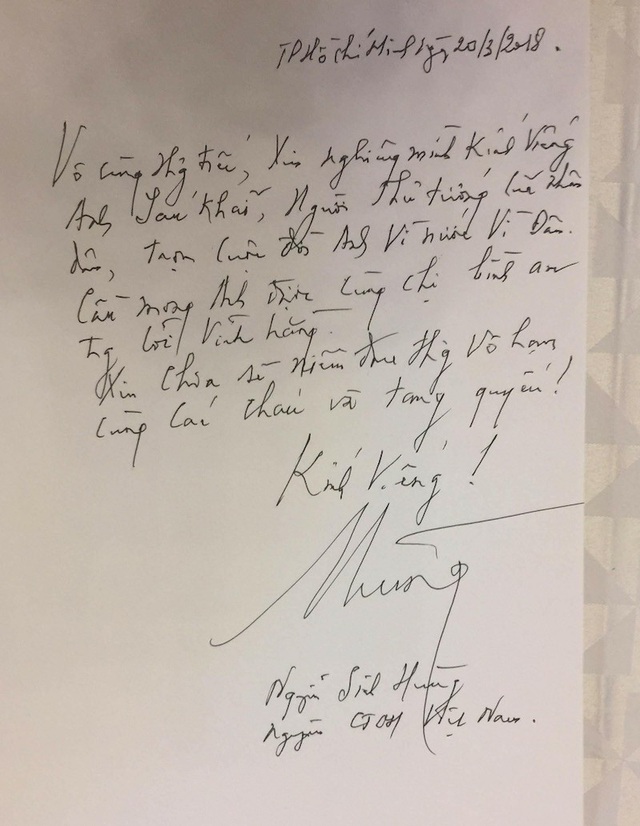 TP Hồ Chí Minh Ngày 20/3/2018.
Vô cùng thg tiếc, Xin nghiêng mình Kính Viếng
Anh Sáu Khải, Người Thủ tướng của nhân
dân, trọn cuộc đời Anh Vì nước Vì Dân.
Cầu mong Anh được cùng chị bình an
tg cõi Vĩnh hằng.
Xin chia sẻ niềm đau thg vô hạn
cùng các cháu và tang quyến!
Kính Viếng!
Hùng
Nguyễn Sinh Hùng
Nguyên CTQH Việt Nam.